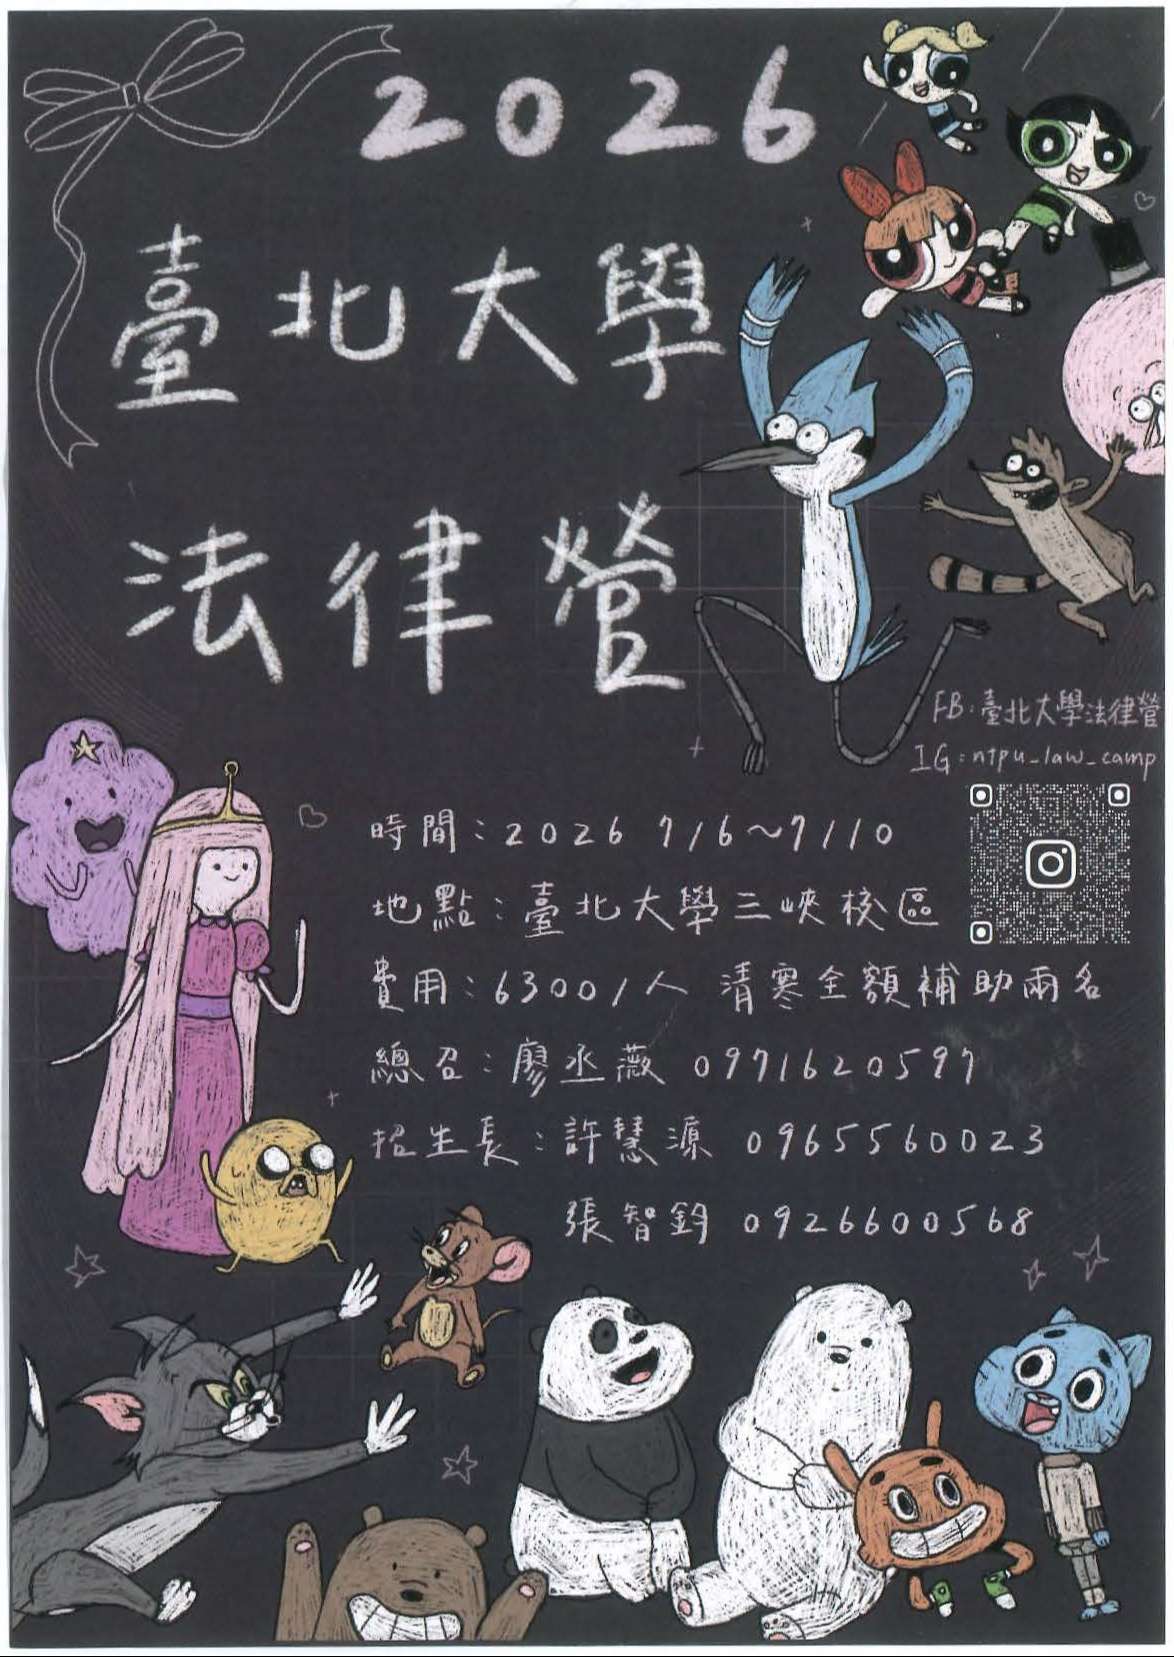 2026
臺北大學
法律營
FB:臺北大學法律營
IG:ntpu_law_camp
時間:2026 7/6~7/10
地點:臺北大學三峽校區
費用:6300/人 清寒全額補助兩名
總召:廖丞薇 0971620597
招生長:許慧源 0965560023
張智鈞 0926600568